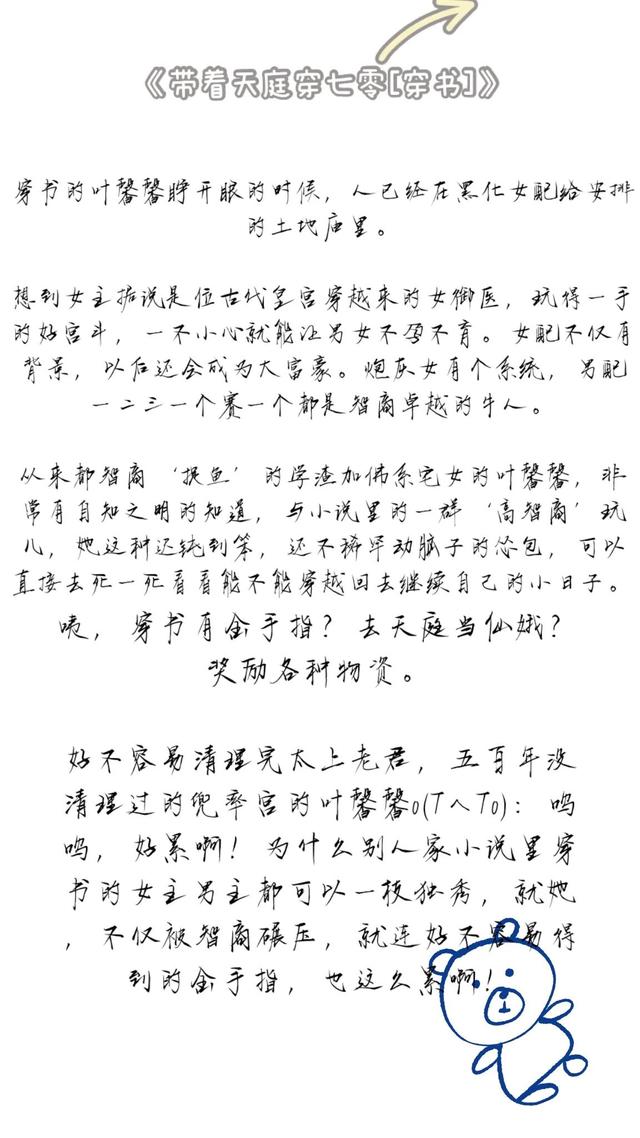 《带着天庭穿七零[穿书]》
穿书的叶馨馨睁开眼的时候，人已经在黑化女配给安排
的土地庙里。
想到女主据说是位古代皇宫穿越来的女御医，玩得一手
的好宫斗，一不小心就能让男女不孕不育。女配不仅有
背景，以后还会成为大富豪。炮灰女有个系统，男配
一二三一个赛一个都是智商卓越的牛人。
从来都智商‘捉鱼’的学渣加佛系宅女的叶馨馨，非
常有自知之明的知道，与小说里的一群‘高智商’玩
儿，她这种还纯到笨，还不稀罕动脑子的怂包，可以
直接去死一死看看能不能穿越回去继续自己的小日子。
咦，穿书有金手指？去天庭当仙娥？
奖励各种物资。
好不容易清理完太上老君，五百年没
清理过的兜率宫的叶馨馨o(T^To)：呜
呜，好累啊！为什么别人家小说里穿
书的女主男主都可以一枝独秀，就她
，不仅被智商碾压，就连好不容易得
到的金手指，也这么累啊！